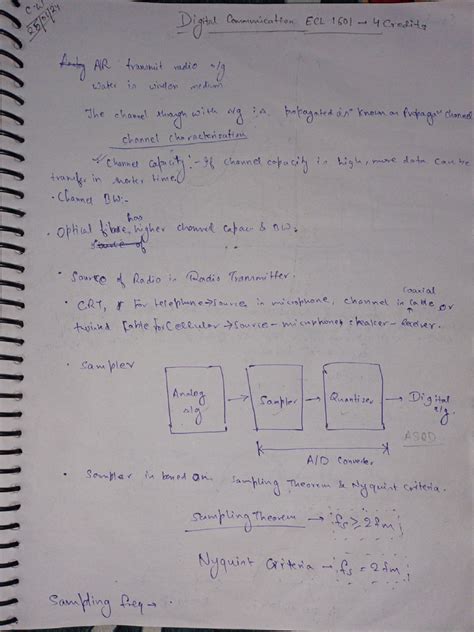 Digital Communication ECL 1601 → 4 Credits
AIR transmit radio s/g
water is wireless medium
The channel through with s/g is propagated is known as Propagⁿ channel
channel characterisation
Channel capacity :- If channel capacity is high, more data can be
transfer in shorter time
• Channel BW:-
• Optical fibre has higher channel capaci & BW.
• Source of Radio is Radio Transmitter.
• CRT, for telephone → source is microphone, channel is coaxial cable or
twisted cable for Cellular → source - microphone, speaker - receiver.
• Sampler
Analog s/g → Sampler → Quantiser → Digital s/g.
A/D Converter
• Sampler is based on Sampling Theorem & Nyquist Criteria.
Sampling Theorem → fs ≥ 2fm
Nyquint Criteria → fs = 2fm
Sampling freq →